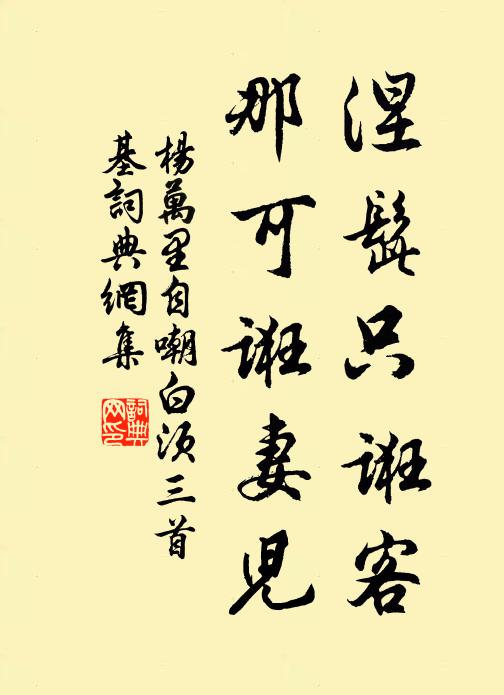 涅髭只诳客
那可诳妻児
楊萬里自嘲白须三首
基詞典網集
詞典网印